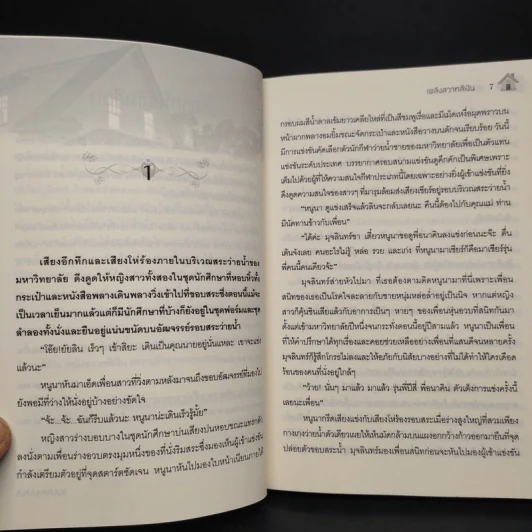 1
เสียงอึกทึกและเสียงโห่ร้องภายในบริเวณสระว่ายน้ำของ
มหาวิทยาลัย ดึงดูดให้หญิงสาวทั้งสองในชุดนักศึกษาที่หอบหิ้วทั้ง
กระเป๋าและหนังสือพลางเดินพลางวิ่งเข้าไปที่ขอบสระซึ่งตอนนี้แม้จะ
เป็นเวลาเย็นมากแล้วแต่ก็มีนักศึกษาที่บ้างก็ยังอยู่ในชุดฟอร์มและชุด
ลำลองทั้งนั่งและยืนอยู่แน่นขนัดบนอัฒจรรย์รอบสระว่ายน้ำ
“โอ๊ย!ยัยลิน เร็วๆ เข้าสิยะ เดินเป็นคุณนายอยู่นั่นแหละ เขาจะแข่ง
แล้วนะ”
หนูนาหันมาเอ็ดเพื่อนสาวที่วิ่งตามหลังมาจนถึงขอบอัฒจรรย์ที่มองไป
ยังพอมีที่ว่างให้นั่งอยู่บ้างอย่างขัดใจ
“จ้ะ...จ้ะ...ฉันก็รีบแล้วนะ หนูนาน่ะเดินเร็วรู้มั้ย”
หญิงสาวร่างบอบบางในชุดนักศึกษาบ่นเสียงปนหอบขณะแทรกตัว
ลงนั่งตามเพื่อนร่างอวบตรงมุมหนึ่งของที่นั่งริมสระซึ่งมองเห็นผู้เข้าแข่งขัน
กำลังเตรียมตัวอยู่ที่จุดสตาร์ตชัดเจน หนูนาหันไปมองใบหน้าเนียนภายใต้
เพลิงสวาทสิเน่ 7
กรอบผมสีน้ำตาลเข้มยาวเคลียไหล่ที่เป็นสีชมพูเรื่อและมีเม็ดเหงื่อผุดพราวบน
หน้าผากพลางอมยิ้มขณะจัดกระเป๋าและหนังสือวางบนตักจนเรียบร้อย วันนี้
มีการแข่งขันคัดเลือกตัวนักกีฬาว่ายน้ำชายของมหาวิทยาลัยเพื่อเป็นตัวแทน
แข่งขันระดับประเทศ บรรยากาศรอบสนามแข่งขันดูคึกคักเป็นพิเศษเพราะ
เต็มไปด้วยผู้ที่ให้ความสนใจกีฬาประเภทนี้โดยเฉพาะอย่างยิ่งผู้เข้าแข่งขันที่ยิ่ง
ดึงดูดความสนใจของสาวๆ ที่มารุมล้อมส่งเสียงเชียร์อยู่รอบบริเวณสระว่ายน้ำ
“หนูนา ดูแข่งเสร็จแล้วลินจะกลับเลยนะ คืนนี้ต้องไปกับคุณแม่ ท่าน
มีนัดทานข้าวกับเพื่อน”
“ได้ค่ะ มุจลินทร์ขา เดี๋ยวหนูนาขอดูพี่อนาคินลงแข่งก่อนนะจ๊ะ ตื่น
เต้นจังเลย คนอะไรไม่รู้ หล่อ รวย และเก่ง ที่หนูนามาเชียร์ก็คือมาเชียร์รุ่น
พี่คนนี้คนเดียวจ้ะ”
มุจลินทร์ส่ายหัวไปมา ที่เธอต้องตามติดหนูนามาที่นี่เพราะเพื่อน
สนิทของเธอเป็นโรคใจละลายกับชายหนุ่มหล่อล่ำอยู่เป็นนิจ หากแต่หญิง
สาวก็คุ้นชินเสียแล้วกับอาการเป็นๆ หายๆ ของเพื่อนหุ่นอวบที่สนิทกันมา
ตั้งแต่เข้ามหาวิทยาลัยปีหนึ่งจนกระทั่งตอนนี้อยู่ปีสามแล้ว หนูนาเป็นเพื่อน
ที่ให้คำปรึกษาได้ทุกเรื่องและคอยช่วยเหลืออย่างเพื่อนที่แสนดีจนหลายครั้ง
มุจลินทร์ก็รู้สึกโกรธไม่ลงและให้อภัยกับนิสัยบางอย่างที่ไม่ได้ทำให้ใครเดือด
ร้อนของคนที่นั่งอยู่ใกล้ๆ
“ว้าย! นั่นๆ มาแล้ว มาแล้ว รุ่นพี่ปีสี่ พี่อนาคิน ตัวเต็งการแข่งครั้งนี้
เลยนะเพื่อน”
หนูนากรีดเสียงแข่งกับเสียงโห่ร้องรอบสระเมื่อร่างสูงใหญ่ที่สวมเพียง
กางเกงว่ายน้ำตัวเดียวเผยให้เห็นมัดกล้ามบนแผงอกกว้างก้าวออกมายืนที่จุด
ปล่อยตัวขอบสระน้ำ มุจลินทร์มองเพื่อนสนิทก่อนจะหันไปมองผู้เข้าแข่งขัน